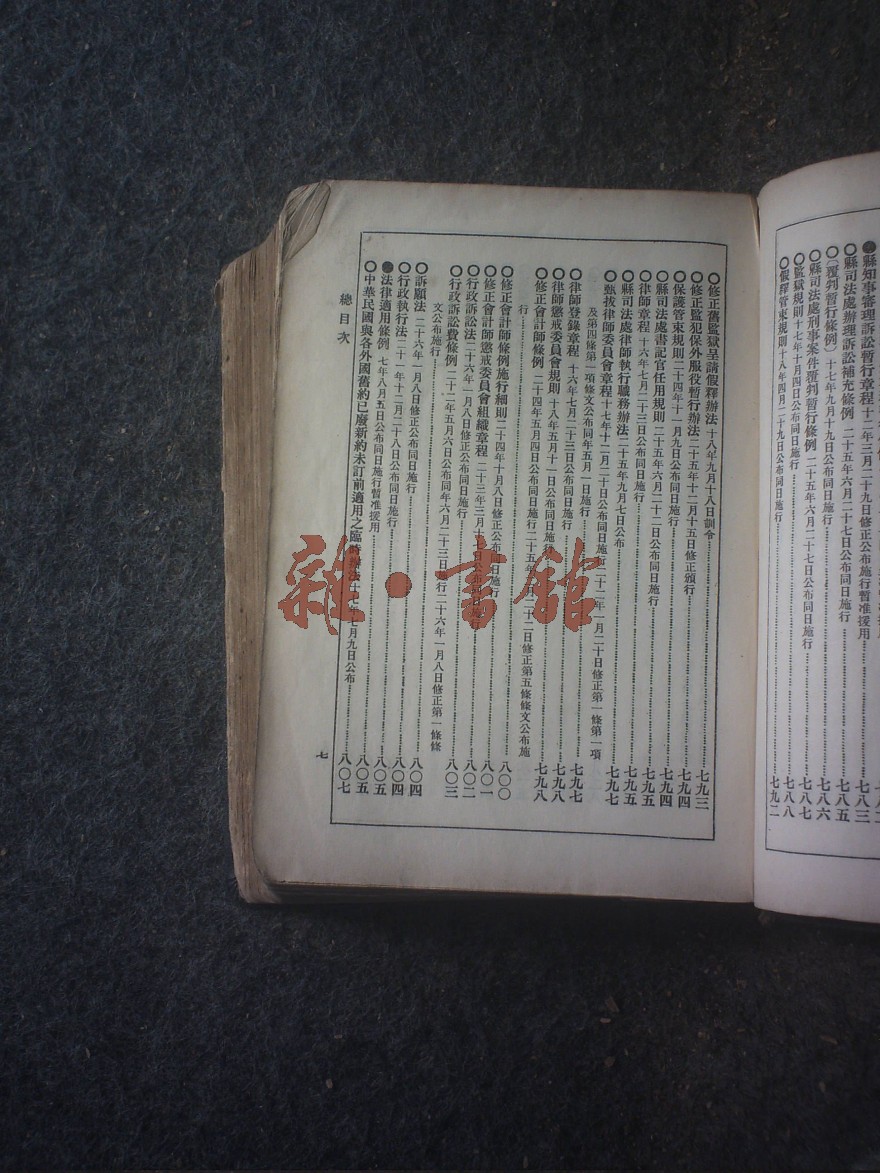 ●縣知事審理訴訟暫行章程 十二年三月二十九日修正公布施行暫准援用 七八三
○縣司法處辦理訴訟補充條例 二十五年六月二十七日公布同日施行 七八五
○(覆判暫行條例) 十七年九月十九日公布同日施行 七八六
○縣司法處刑事案件覆判暫行條例 二十五年六月二十七日公布同日施行 七八七
○監獄規則 十七年十月四日公布同日施行 七八八
○假釋管束規則 十八年四月二十九日公布同日施行 七九二
○修正舊監獄呈請假釋辦法 十八年九月十八日訓令 七九三
○修正監犯保外服役暫行辦法 二十五年十二月十五日修正頒行 七九四
○保護管束規則 二十四年十一月九日公布同日施行 七九四
○縣司法處書記官任用規則 二十五年六月二十二日公布同日施行 七九五
○律師章程 十六年七月二十三日公布同日施行 七九五
○縣司法處律師執行職務辦法 二十五年九月七日公布 七九七
○甄拔律師委員會章程 十七年十二月二十日公布同日施行二十二年一月二十日修正第一條第一項
及第四條第一項條文公布同年五月一日施行 七九七
○律師登錄章程 十六年七月二十三日公布同日施行 七九七
○律師懲戒委員會規則 十八年五月十一日公布同日施行 七九八
○修正會計師條例 二十四年五月四日公布同日施行二十五年 月二十二日修正第五條條文公布施
行 七九八
○修正會計師條例施行細則 二十四年十月八日修正公布同日施行 八〇〇
○修正會計師懲戒委員會組織章程 二十三年三月十七日公布同日施行 八〇一
○行政訴訟法 二十六年一月八日修正公布同日施行 八〇二
○行政訴訟費條例 二十二年五月六日公布同年六月二十三日施行二十六年一月八日修正第一條條
文公布施行 八〇三
○訴願法 二十六年一月八日修正公布同日施行 八〇四
○行政執行法 二十一年十二月二十八日公布同日施行 八〇四
●法律適用條例 七年八月五日公布同日施行暫准援用 八〇五
○中華民國與各外國舊約已廢新約未訂前適用之臨時辦法 十七年七月九日公布 八〇七
總目次
七
雜·書館